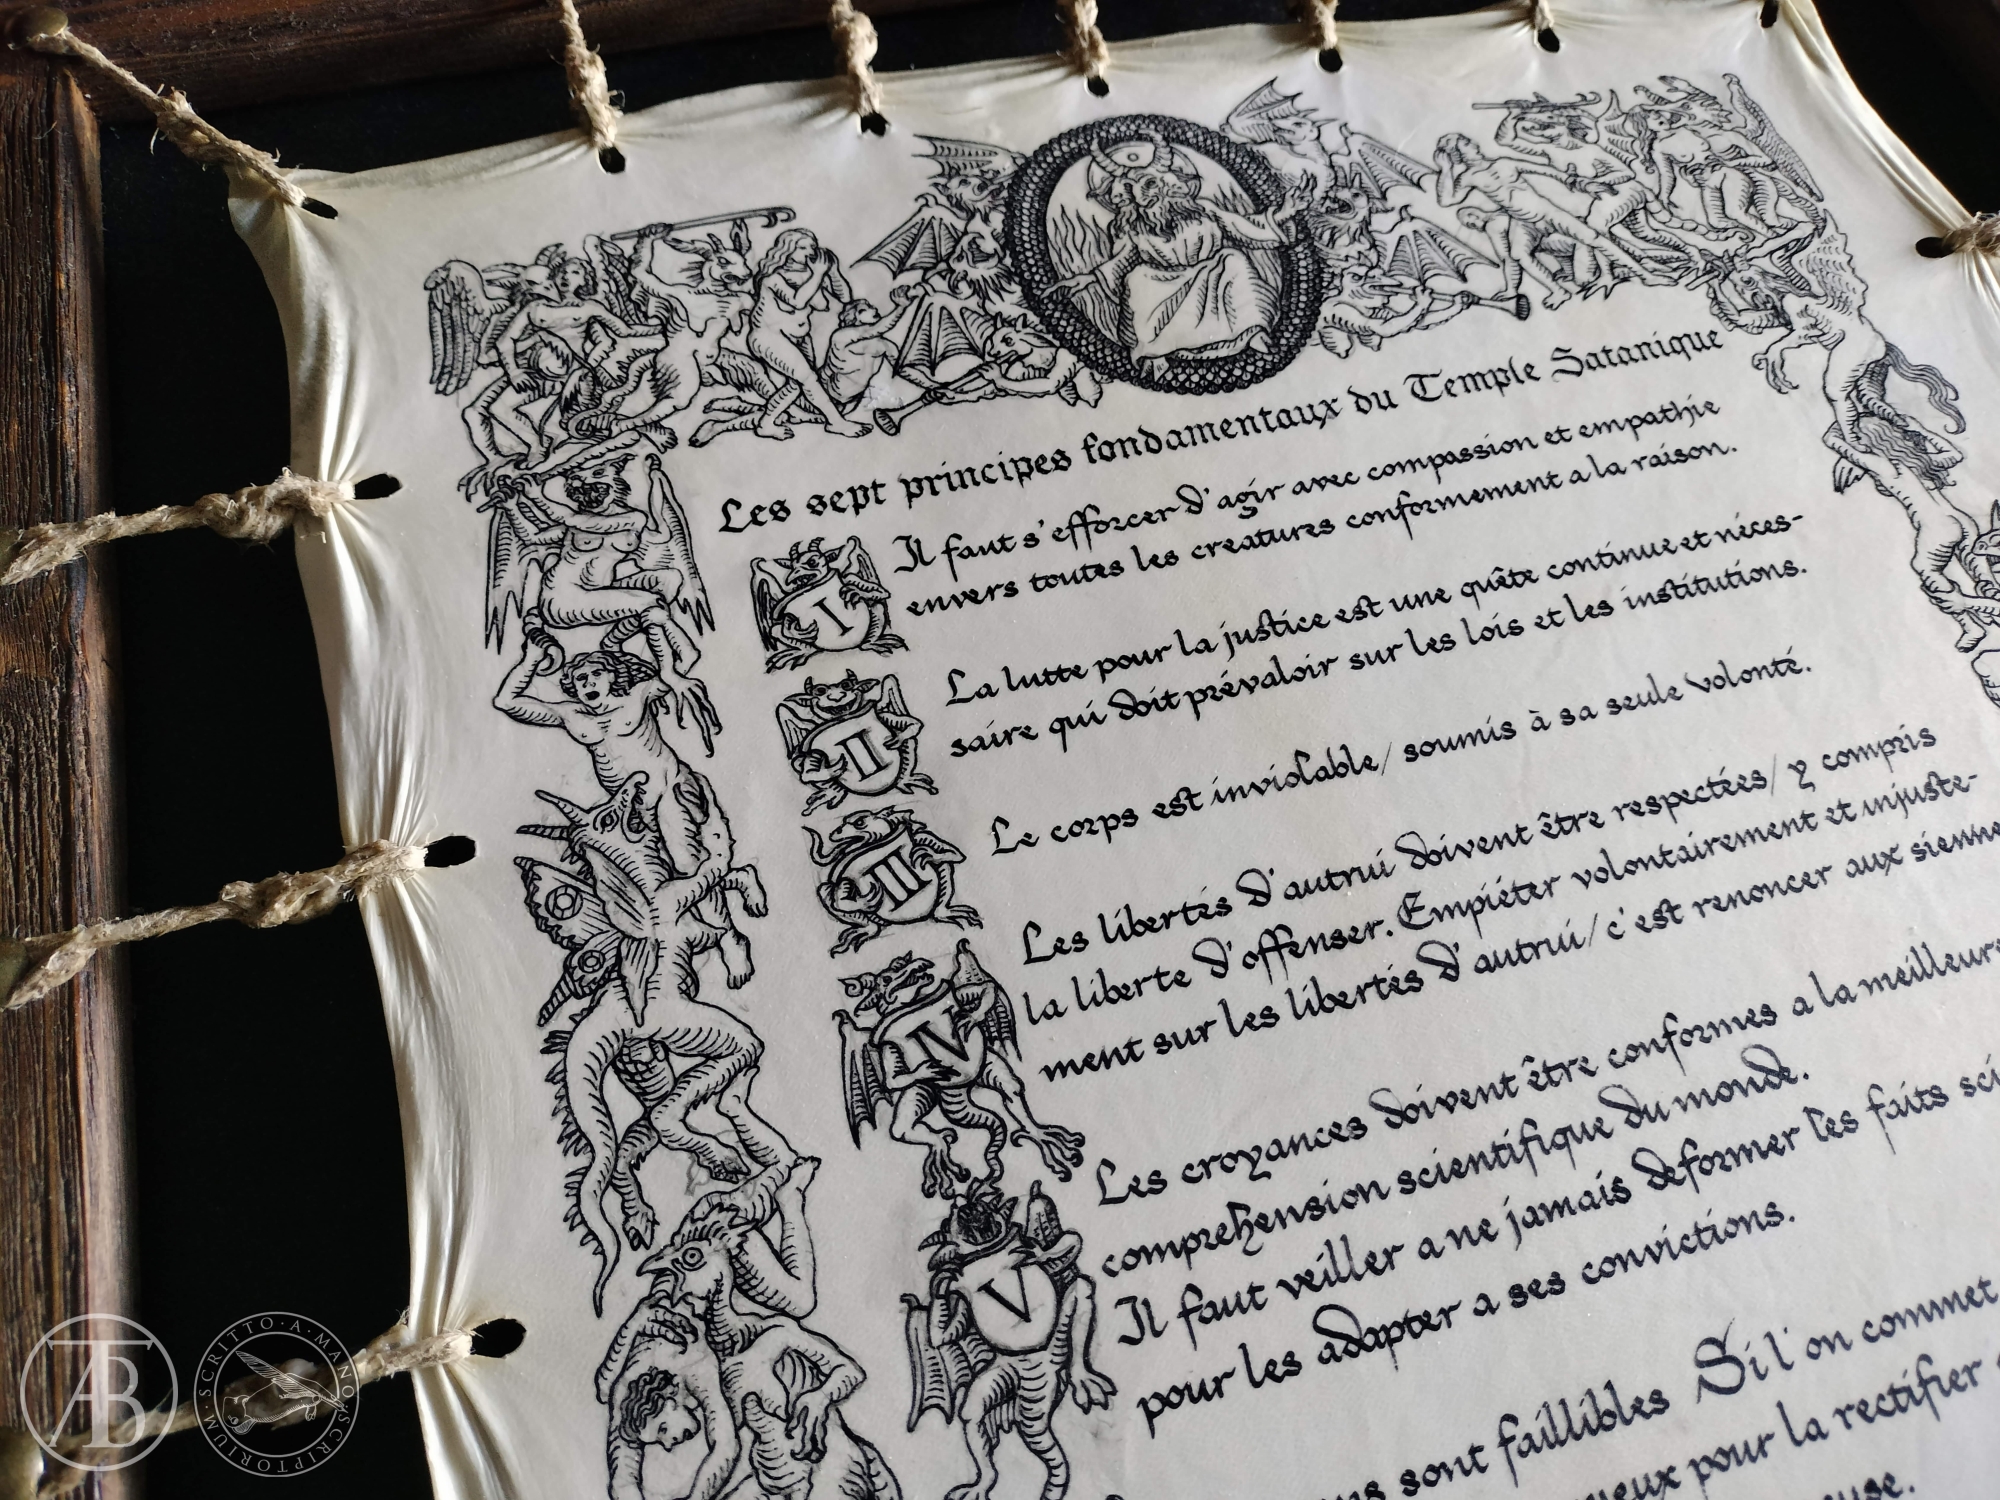 Les sept principes fondamentaux du Temple Satanique
I
Il faut s'efforcer d'agir avec compassion et empathie
envers toutes les creatures conformement a la raison.
II
La lutte pour la justice est une quête continue et néces-
saire qui doit prévaloir sur les lois et les institutions.
III
Le corps est inviolable/ soumis à sa seule volonté.
IV
Les libertés d'autrui doivent être respectées/ y compris
la liberte d'offenser. Empiéter volontairement et injuste-
ment sur les libertés d'autrui/ c'est renoncer aux
V
Les croyances doivent être conformes a la
comprehension scientifique du monde.
Il faut veiller a ne jamais deformer les faits
pour les adapter a ses convictions.
sont faillibles Si l'on commet
pour la rectifier
SCRITTO A MANO SCRIPTORIUM